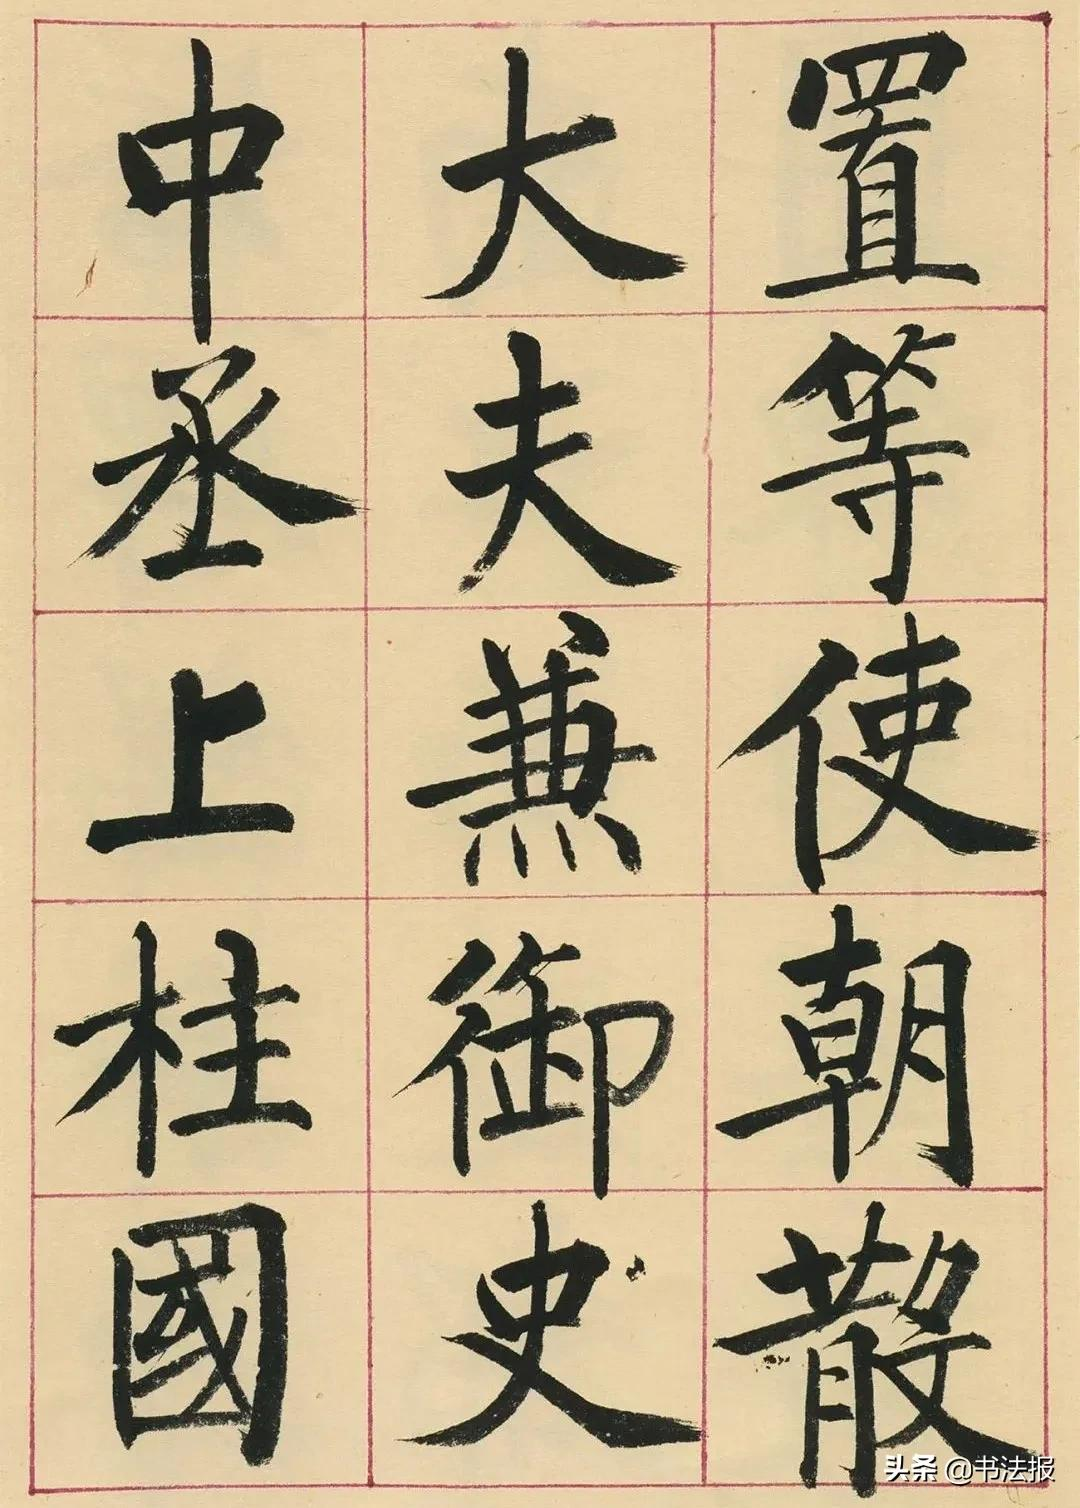 置等使朝散
大夫兼御史
中丞上柱國
头条 @书法报